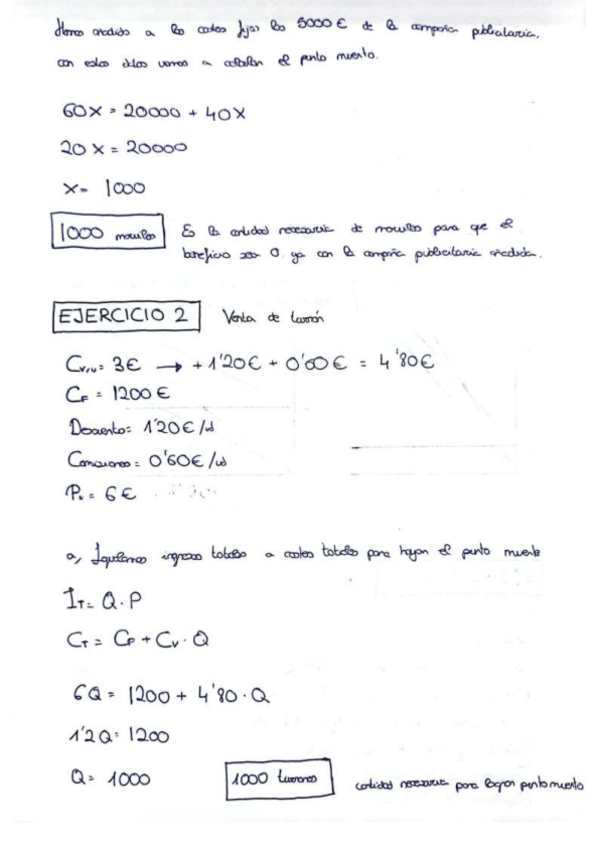 Hemos añadido a los costes fijos los 5000 € de la campaña publicitaria,
con estos datos vamos a calcular el punto muerto.
60X = 20000 + 40X
20X = 20000
X = 1000
1000
Es la cantidad necesaria de para que el
beneficio sea 0 ya con la campaña publicitaria añadida.
EJERCICIO 2 Venta de turrón
Cv/u = 3€ → + 1'20€ + 0'60€ = 4'80€
CF = 1200 €
Descuento: 1'20€/ud
Comisiones = 0'60€/ud
Pv = 6€
a, Igualamos ingresos totales a costes totales para el punto muerto
IT = Q·P
CT = CF + Cv·Q
6Q = 1200 + 4'80·Q
1'2Q = 1200
Q = 1000 1000 turrones cantidad necesaria para punto muerto